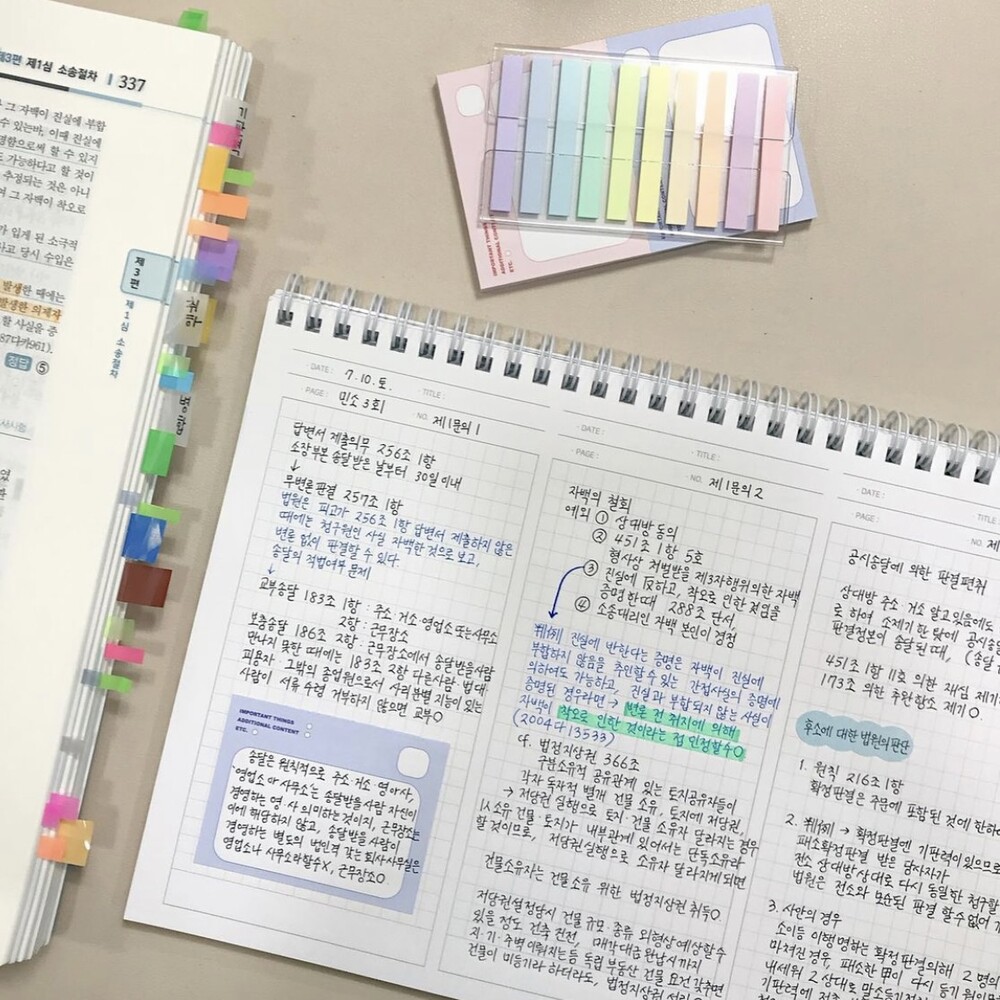 제3편 제1심 소송절차 337
그 자백이 진실에 부합
수 있는바, 이때 진실에
경험으로써 할 수 있지
도 가능하다고 할 것이
추정되는 것은 아니
여 그 자백이 착오로
가 입게 된 소극적
다고 당시 수입은
발생한 때에는
발생한 의제자
할 사실을 증
87다카961).
정답 ⑤
제3편
제1심 소송절차
취하
IMPORTANT THINGS
ADDITIONAL CONTENT
ETC.
DATE: 7.10.토. TITLE:
PAGE: 민소 3회 NO. 제1문의 1
답변서 제출의무 256조 1항
소장부본 송달받은 날부터 30일 이내
↓
무변론판결 257조 1항
법원은 피고가 256조 1항 답변서 제출하지 않은
때에는 청구원인 사실 자백한 것으로 보고,
변론 없이 판결할 수 있다.
송달의 적법여부 문제
↓
교부송달 183조 1항 : 주소·거소·영업소 또는 사무소
2항 : 근무장소
보충송달 186조 2항 : 근무장소에서 송달받을사람
만나지 못한 때에는 183조 2항 다른사람·법대·
피용자·그밖의 종업원으로서 사리분별 지능이 있는
사람이 서류 수령 거부하지 않으면 교부○
IMPORTANT THINGS
ADDITIONAL CONTENT
ETC.
송달은 원칙적으로 주소·거소·영 or 사,
'영업소 or 사무소'는 송달받을 사람 자신이
경영하는 영·사 의미하는 것이지, 근무장소는
이에 해당하지 않고, 송달받을 사람이
경영하는 별도의 법인격 갖는 회사 사무실은
영업소나 사무소라 할 수 X, 근무장소○
DATE: TITLE:
PAGE: NO. 제1문의 2
자백의 철회
예외 ① 상대방 동의
② 451조 1항 5호
형사상 처벌받을 제3자행위 의한 자백
③ 진실에 反하고, 착오로 인한 것임을
증명한 때 288조 단서
④ 소송대리인 자백 본인이 경정
判例 진실에 반한다는 증명은 자백이 진실에
부합하지 않음을 추인할 수 있는 간접사실의 증명에
의하여도 가능하고, 진실과 부합되지 않는 사실이
증명된 경우라면 → 변론 전 취지에 의해
자백이 착오로 인한 것이라는 점 인정할 수○
(2004다13533)
cf. 법정지상권 366조
구분소유적 공유관계 있는 토지공유자들이
각자 독자적 별개 건물 소유, 토지에 저당권,
→ 저당권 실행으로 토지·건물 소유자 달라지는 경우
소유 건물·토지가 내부관계 있어서는 단독소유라
할 것이므로, 저당권실행으로 소유자 달라지게 되면
건물소유자는 건물소유 위한 법정지상권 취득○
저당권설정당시 건물 규모·종류 외형상 예상할 수
있을 정도 건축 진전, 매각대금 완납시까지
지·기·주벽 이뤄지는 등 독립 부동산 건물 요건 갖추면
건물이 미등기라 하더라도, 법정지상권 성립○
DATE:
PAGE: NO.
공시송달에 의한 판결편취
상대방 주소·거소 알고 있음에도
로 하여 소제기한 탓에 공시송달
판결정본이 송달된 때,
451조 1항 11호 의한 재심 제기
173조 의한 추완항소 제기○
후소에 대한 법원의 판단
1. 원칙 216조 1항
확정판결은 주문에 포함된 것에 한하
2. 判例 → 확정판결엔 기판력이 있으므로
패소확정판결 받은 당사자가
전소 상대방 상대로 다시 동일한 청구할
법원은 전소와 모순된 판결 할 수 없어
3. 사안의 경우
소이등 이행 명하는 확정판결의해 2명의
마쳐진 경우, 패소한 甲이 다시 등기 원인무
내세워 2 상대로 말소등기